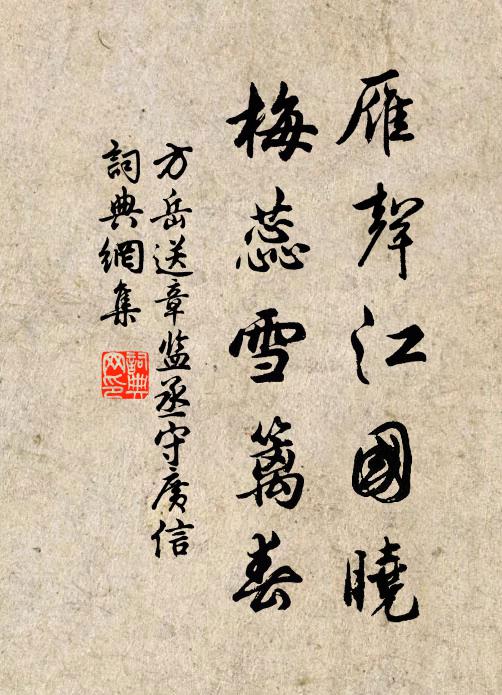 雁聲江國曉
梅蕊雪籬春
方岳送章监丞守廣信
詞典網集
詞典网印